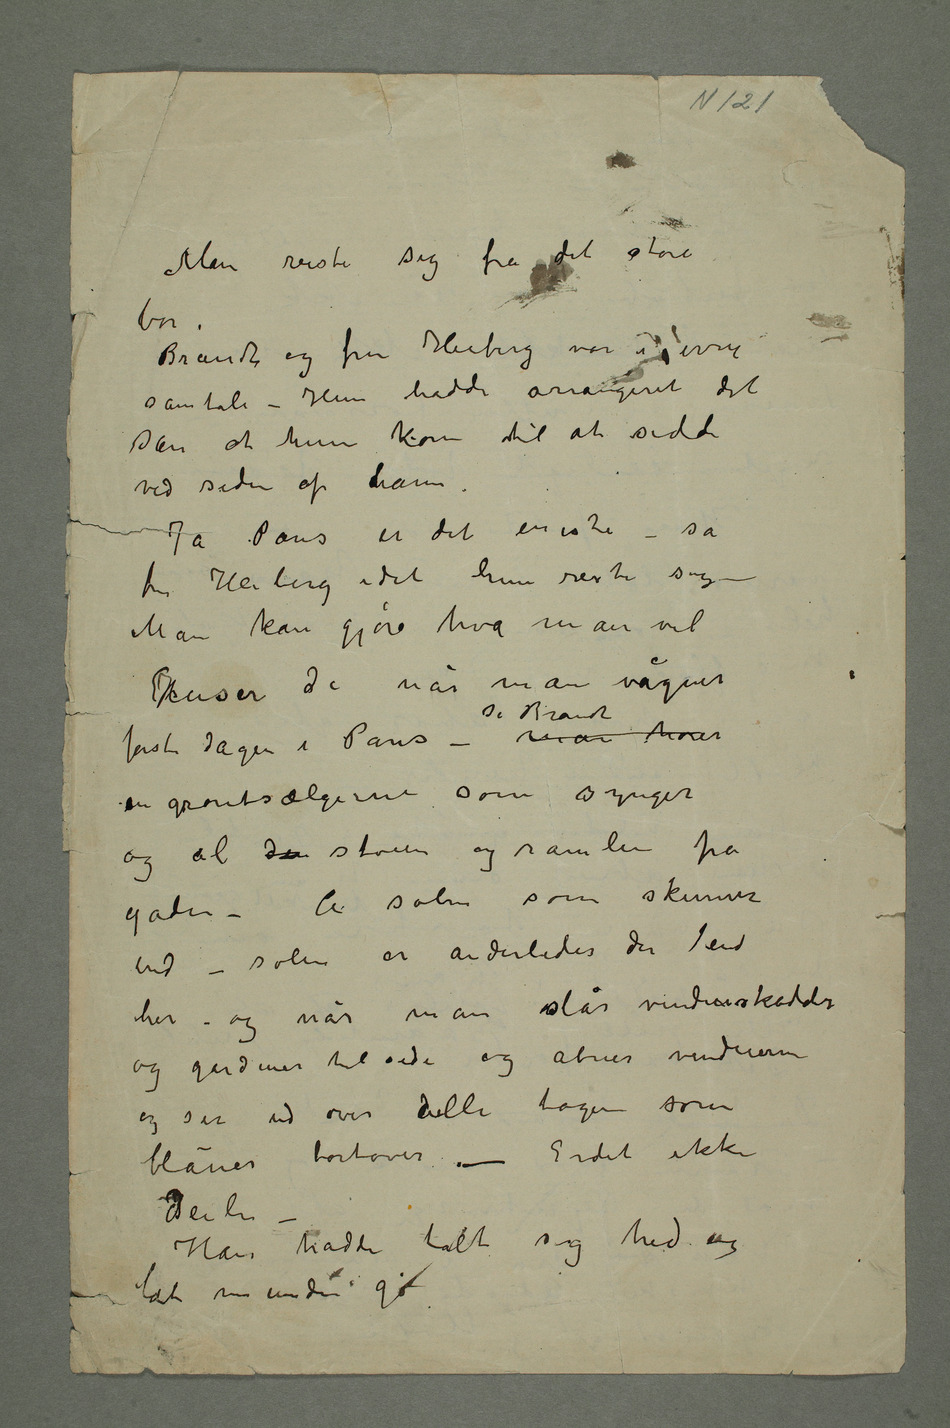 N 121
Man reiste sig fra det store
bor.
Brandt og fru Heiberg var i ivrig
samtale – Hun hadde arrangeret det
san at hun kom til at sidde
ved siden af ham.
Ja Paris er det eneste – sa
fru Heiberg idet hun reiste sig –
Man kan gjøre hva man vil
Husker De når man vågner
første dagen i Paris – sa Brandt man hører
en grøntsælgerne som synger
og al den støien og ramlen fra
gaden – Å solen som skinner
ind – solen er anderledes der end
her – og når man slår vindueskodder
og gardiner tilside og åbner vinduerne
og ser ud over alle tagene som
blåner bortover. – Er det ikke
Deili –
Han hadde talt sig hed og
lat munden gå